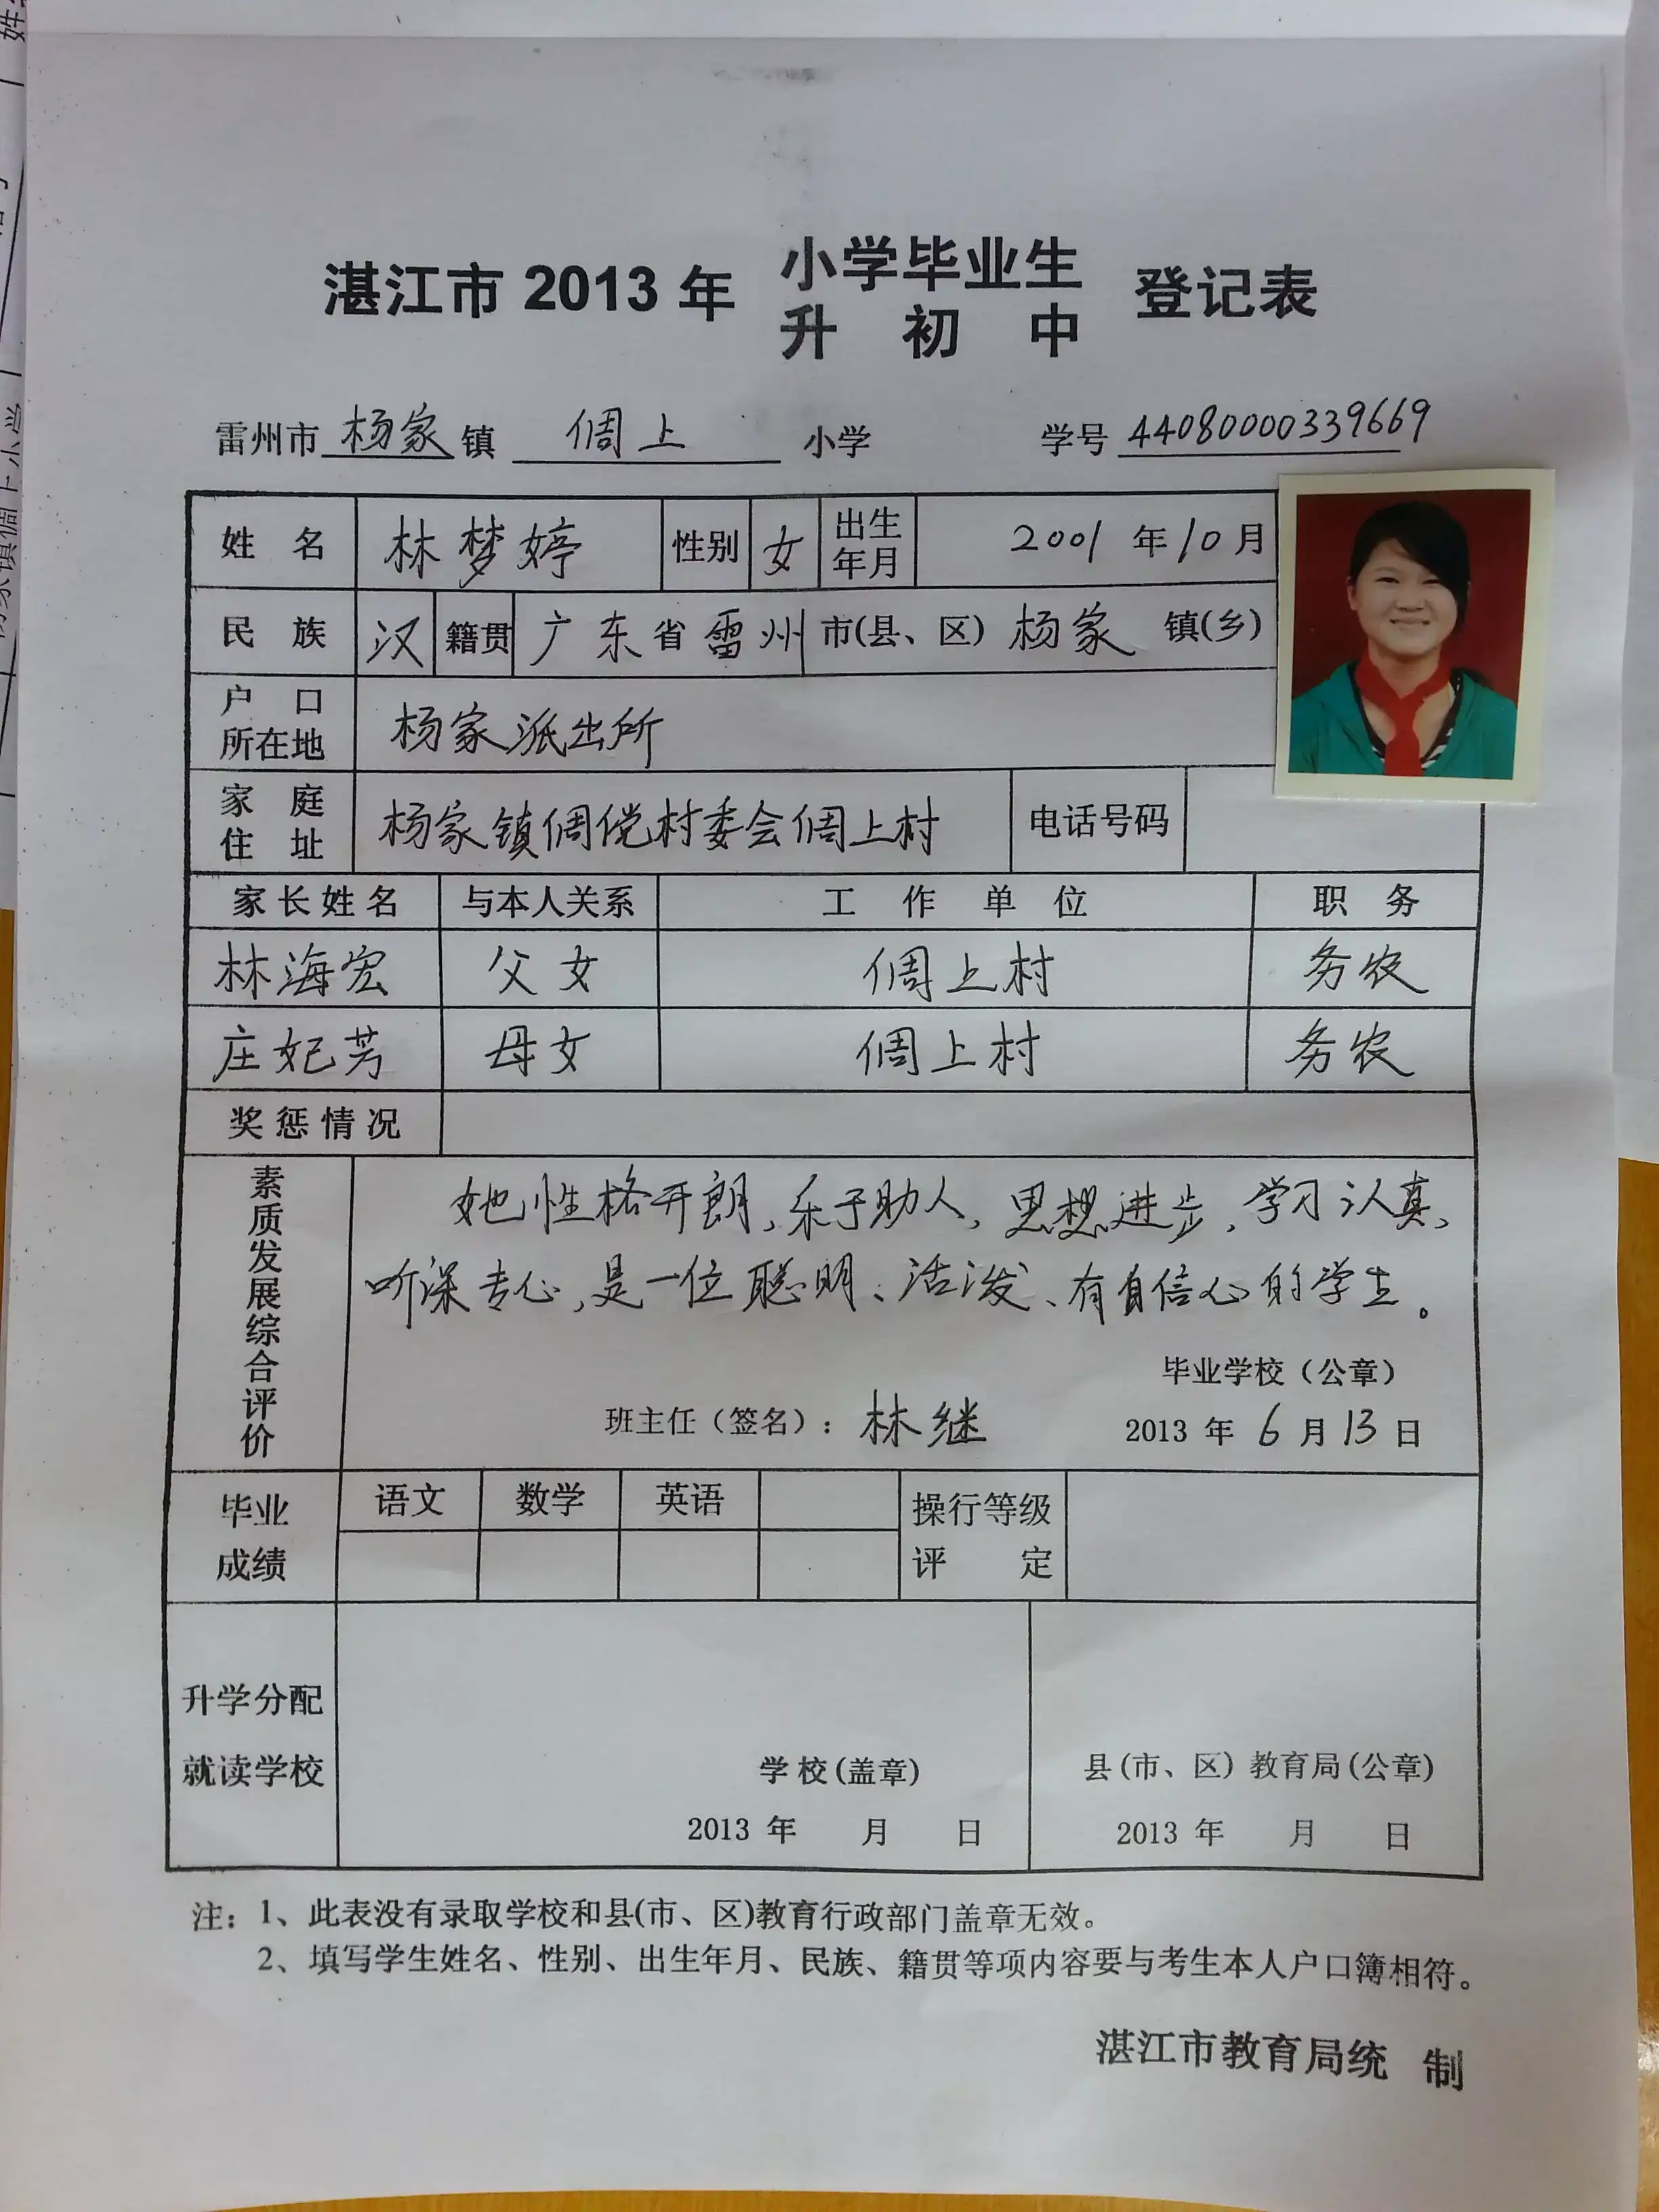 湛江市 2013 年 小学毕业生 登记表
升 初 中
雷州市 杨家 镇 倜上 小学 学号 44080000339669
姓 名 林梦婷 性别 女 出生年月 2001 年 10 月
民 族 汉 籍贯 广东 省 雷州 市(县、区) 杨家 镇(乡)
户 口 所在地 杨家派出所
家 庭 住 址 杨家镇倜傥村委会倜上村 电话号码
家长姓名 与本人关系 工 作 单 位 职 务
林海宏 父女 倜上村 务农
庄妃芳 母女 倜上村 务农
奖惩情况
素质发展综合评价
她性格开朗,乐于助人,思想进步,学习认真,
听课专心,是一位聪明、活泼、有自信心的学生。
毕业学校（公章）
班主任（签名）：林继 2013 年 6 月 13 日
毕业成绩 语文 数学 英语 操行等级评 定
升学分配
就读学校
学校(盖章) 县(市、区)教育局(公章)
2013 年 月 日 2013 年 月 日
注：1、此表没有录取学校和县(市、区)教育行政部门盖章无效。
2、填写学生姓名、性别、出生年月、民族、籍贯等项内容要与考生本人户口簿相符。
湛江市教育局统 制